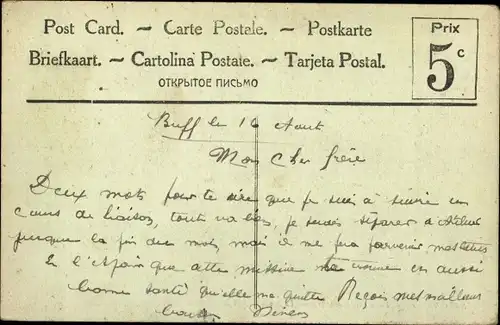 Post Card. — Carte Postale. — Postkarte
Briefkaart. — Cartolina Postale. — Tarjeta Postal.
ОТКРЫТОЕ ПИСЬМО
Prix
5c
Buff le 16 Aout
Mon Cher frère
Deux mots pour te dire que je suis à suivre un
cours de liaison, tout va bien, je suis séparer d'
jusque la fin du mois, mais il me fera parvenir mes lettres
En l'espoir que cette missive te trouve en aussi
bonne santé qu'elle me quitte Reçois mes meilleurs